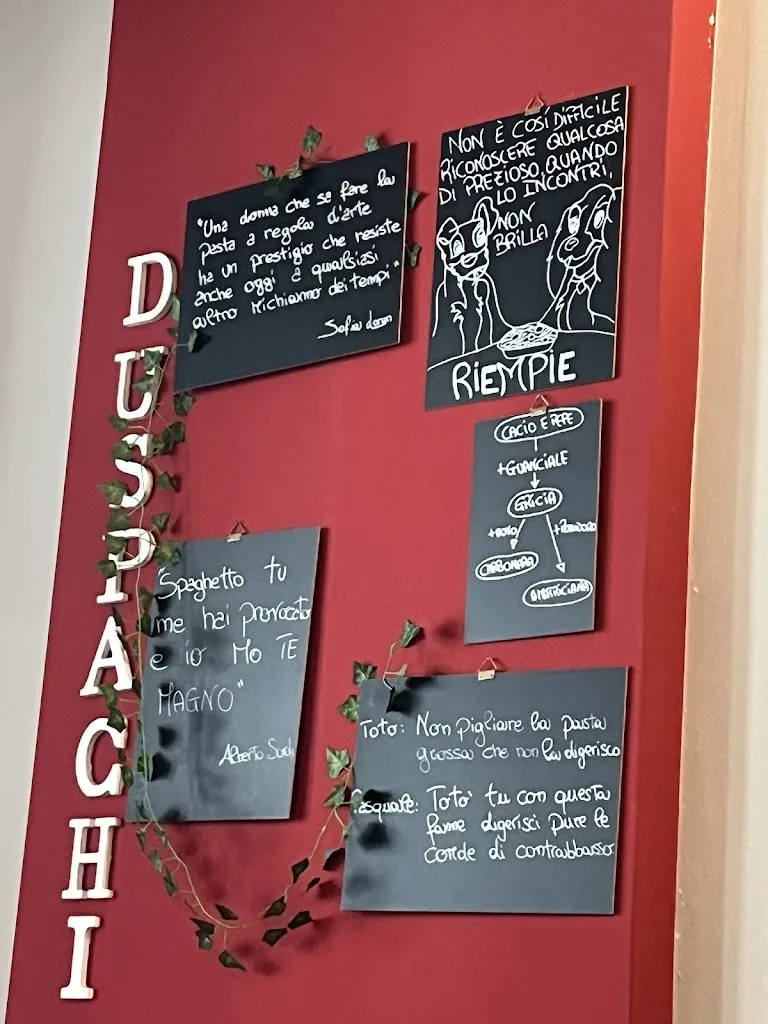 DUSPAGHI
"Una donna che sa fare la
pasta a regola d'arte
ha un prestigio che resiste
anche oggi a qualsiasi
altro richiamo dei tempi."
Sofia Loren
NON È COSÍ DIFFICILE
RICONOSCERE QUALCOSA
DI PREZIOSO, QUANDO
LO INCONTRI,
NON
BRILLA
RIEMPIE
CACIO E PEPE
+GUANCIALE
GRICIA
+UOVO +POMODORO
CARBONARA
AMATRICIANA
"Spaghetto tu
me hai provocato
e io MO TE
MAGNO"
Alberto Sordi
Totò: Non pigliare la pasta
grossa che non la digerisco
Pasquale: Totò tu con questa
fame digerisci pure le
corde di contrabbasso